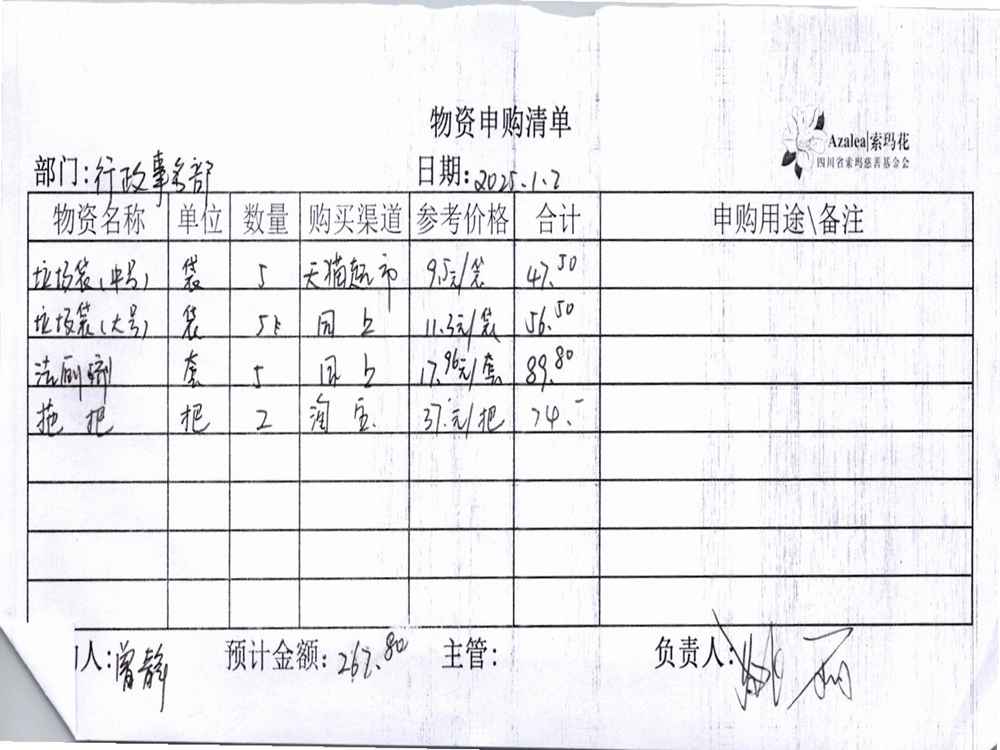 物资申购清单
Azalea|索玛花
四川省索玛慈善基金会
部门:行政事务部 日期:2025.1.2
物资名称 单位 数量 购买渠道 参考价格 合计 申购用途\备注
垃圾袋(中号) 袋 5 天猫超市 9.5元/袋 47.50
垃圾袋(大号) 袋 5 同上 11.3元/袋 56.50
洁厕剂 套 5 同上 17.96元/套 89.80
拖把 把 2 淘宝 37.元/把 74.-
人:曾静 预计金额:267.80 主管: 负责人: